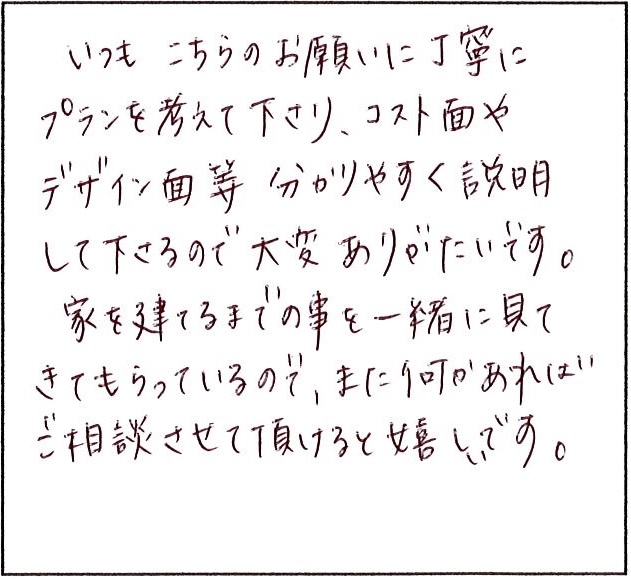 いつも こちらのお願いに丁寧に
プランを考えて下さり、コスト面や
デザイン面等 分かりやすく説明
して下さるので大変ありがたいです。
家を建てるまでの事を一緒に見て
きてもらっているので、また何かあれば
ご相談させて頂けると嬉しいです。